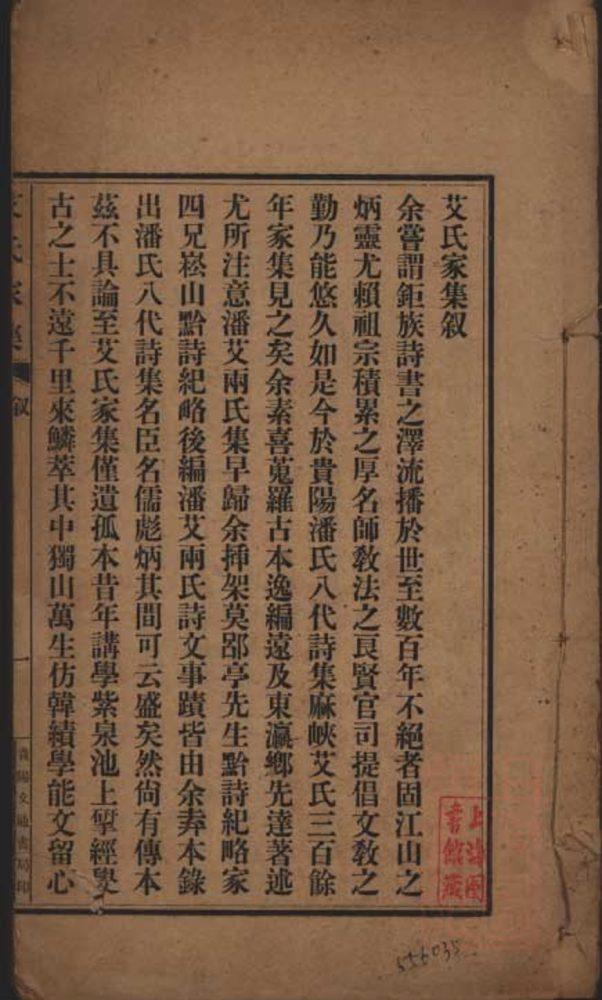 艾氏家集叙
余嘗謂鉅族詩書之澤流播於世至數百年不絕者固江山之
炳靈尤賴祖宗積累之厚名師教法之良賢官司提倡文教之
勤乃能悠久如是今於貴陽潘氏八代詩集麻峽艾氏三百餘
年家集見之矣余素喜蒐羅古本逸編遠及東瀛鄉先達著述
尤所注意潘艾兩氏集早歸余揷架莫郘亭先生黔詩紀略家
四兄崧山黔詩紀略後編潘艾兩氏詩文事蹟皆由余弆本錄
出潘氏八代詩集名臣名儒彪炳其間可云盛矣然尙有傳本
茲不具論至艾氏家集僅遺孤本昔年講學紫泉池上揅經爨
古之士不遠千里來鱗萃其中獨山萬生仿韓績學能文留心
艾氏家集
叙
一
貴陽文通書局印
上海圖
書館藏
556035